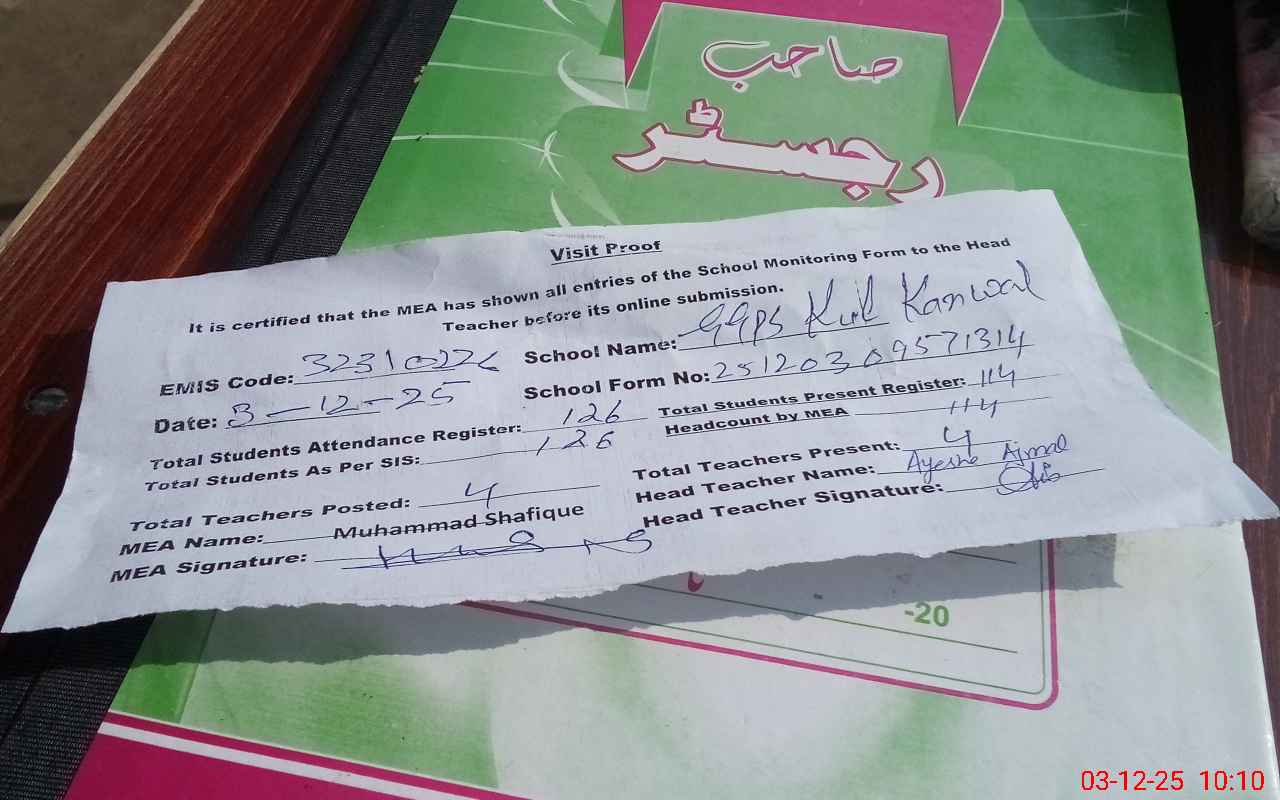 صاحب
رجسٹر
Visit Proof
It is certified that the MEA has shown all entries of the School Monitoring Form to the Head
Teacher before its online submission.
EMIS Code: 32310226 School Name: GGPS Kanwal
Date: 3-12-25 School Form No: 25120309571314
Total Students Attendance Register: 126 Total Students Present Register: 114
Total Students As Per SIS: 126 Headcount by MEA 114
Total Teachers Posted: 4 Total Teachers Present: 4
MEA Name: Muhammad Shafique Head Teacher Name: Ayesha Ajmal
MEA Signature: Head Teacher Signature:
-20
03-12-25 10:10